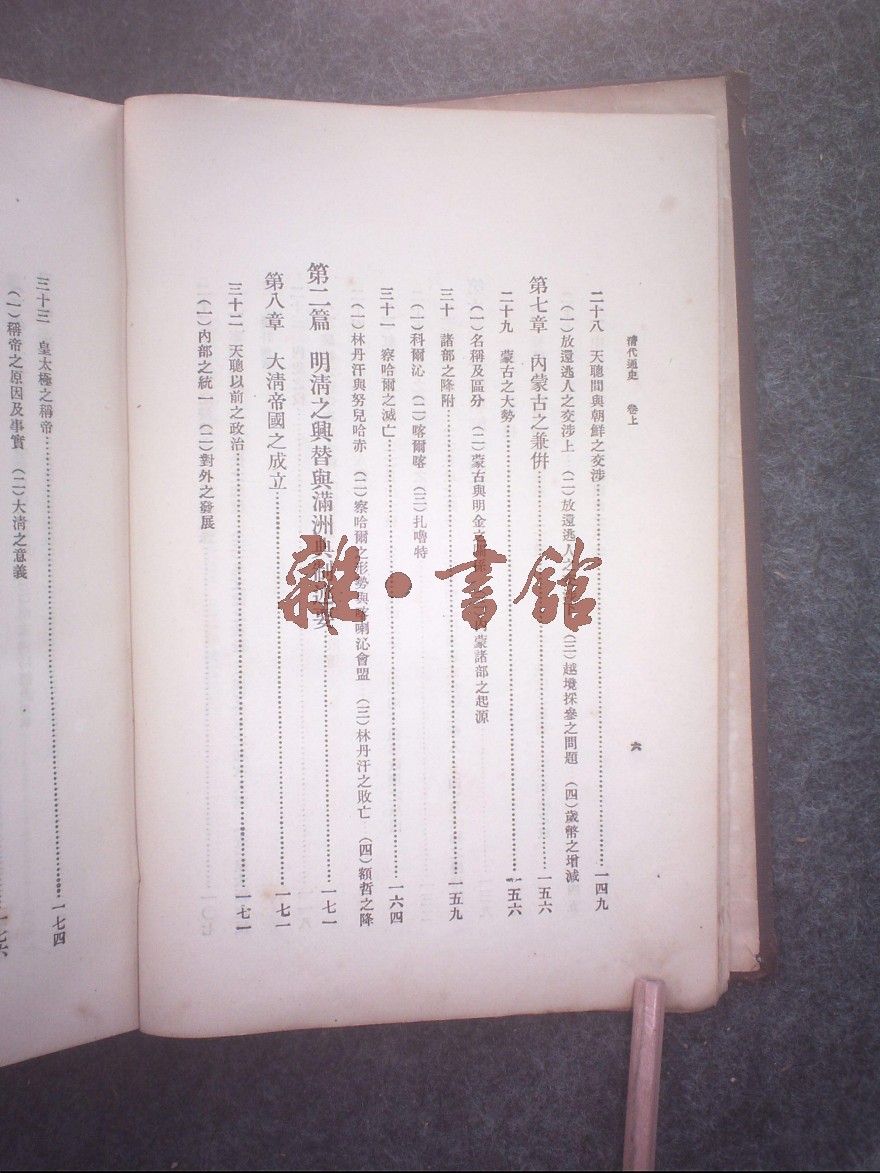 清代通史　卷上
六
二十八　天聰間與朝鮮之交涉……一四九
（一）放還逃人之交涉上　（二）放還逃人之　（三）越境採參之問題　（四）歲幣之增減
第七章　內蒙古之兼併……一五六
二十九　蒙古之大勢……一五六
（一）名稱及區分　（二）蒙古與明金　內蒙諸部之起源
三十　諸部之降附……一五九
（一）科爾沁　（二）喀爾喀　（三）扎嚕特
三十一　察哈爾之滅亡……一六四
（一）林丹汗與努兒哈赤　（二）察哈爾之形勢與喀喇沁會盟　（三）林丹汗之敗亡　（四）額哲之降
第二篇　明清之興替與滿洲……一七一
第八章　大淸帝國之成立……一七一
三十二　天聰以前之政治……一七一
（一）內部之統一　（二）對外之發展
三十三　皇太極之稱帝……一七四
（一）稱帝之原因及事實　（二）大淸之意義
一七六
雜·書館